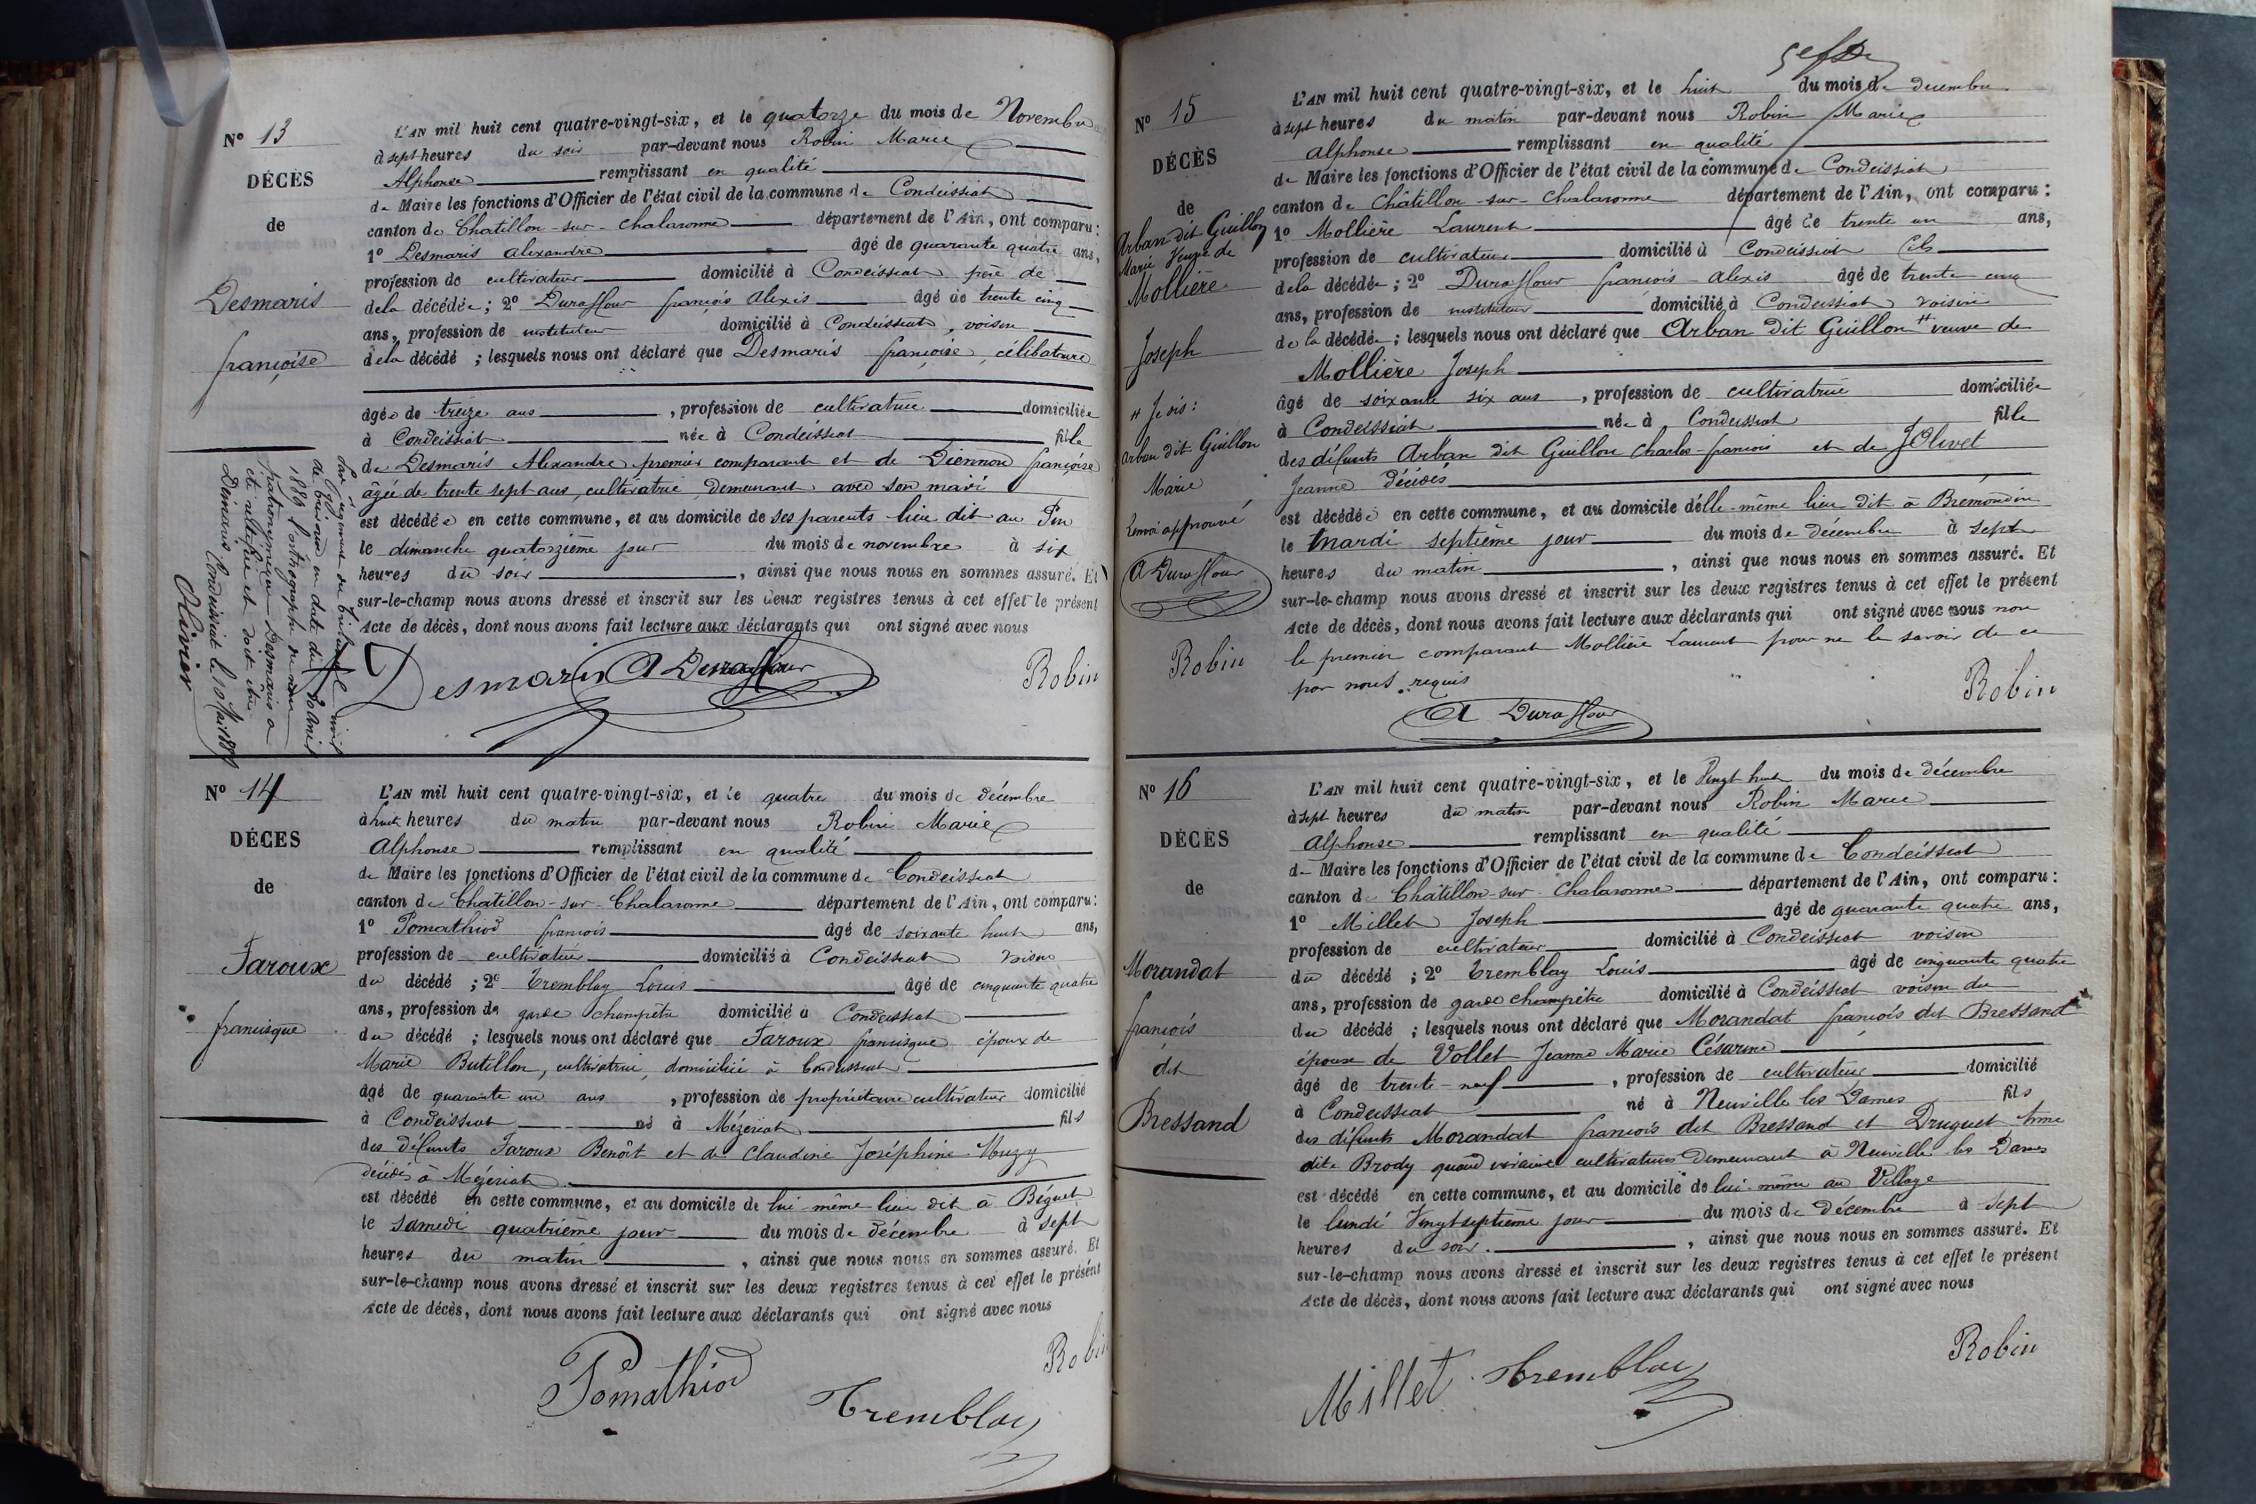 Nº 13
DÉCÈS
de
Desmaris
françoise
L'AN mil huit cent quatre-vingt-six, et le quatorze du mois de Novembre
à sept heures du soir par-devant nous Robin Marie
Alphonse remplissant en qualité
de Maire les fonctions d'Officier de l'état civil de la commune de Condeissiat
canton de Chatillon-sur-Chalaronne département de l'Ain, ont comparu:
1º Desmaris alexandre âgé de quarante quatre ans,
profession de cultivateur domicilié à Condeissiat père de
de la décédée; 2º Duraflour françois Alexis âgé de trente cinq
ans, profession de instituteur domicilié à Condeissiat, voisin
de la décédé; lesquels nous ont déclaré que Desmaris françoise, célibataire
âgée de treize ans, profession de cultivatrice domiciliée
à Condeissiat née à Condeissiat fille
de Desmaris Alexandre premier comparant et de Diennon françoise
âgée de trente sept ans, cultivatrice demeurant avec son mari
est décédée en cette commune, et au domicile de ses parents lieu dit au Pin
le dimanche quatorzième jour du mois de novembre à six
heures du soir, ainsi que nous nous en sommes assuré. Et
sur-le-champ nous avons dressé et inscrit sur les deux registres tenus à cet effet le présent
Acte de décès, dont nous avons fait lecture aux déclarants qui ont signé avec nous
Desmaris A Duraflour Robin
Par jugement du tribunal civil
de en date du 30 avril
188 l'orthographe du nom
patronymique Desmaris a
été rectifiée et doit être
Démaris Condeissiat le 10 Mai 188
Olivier
Nº 14
DÉCES
de
Faroux
francisque
L'AN mil huit cent quatre-vingt-six, et le quatre du mois de décembre
à huit heures du matin par-devant nous Robin Marie
Alphonse remplissant en qualité
de Maire les fonctions d'Officier de l'état civil de la commune de Condeissiat
canton de Chatillon-sur-Chalaronne département de l'Ain, ont comparu:
1º Pomathiod françois âgé de soixante huit ans,
profession de cultivateur domicilié à Condeissiat voisin
du décédé; 2º Tremblay Louis âgé de cinquante quatre
ans, profession de garde champêtre domicilié à Condeissiat
du décédé; lesquels nous ont déclaré que Faroux francisque époux de
Marie Butillon, cultivatrice, domiciliée à Condeissiat
âgé de quarante un ans, profession de propriétaire cultivateur domicilié
à Condeissiat né à Mézériat fils
des défunts Faroux Benoît et de Claudine Joséphine Muzy
décédés à Mézériat
est décédé en cette commune, et au domicile de lui-même lieu dit à Béguet
le samedi quatrième jour du mois de décembre à sept
heures du matin, ainsi que nous nous en sommes assuré. Et
sur-le-champ nous avons dressé et inscrit sur les deux registres tenus à cet effet le présent
Acte de décès, dont nous avons fait lecture aux déclarants qui ont signé avec nous
Robin
Pomathiod
Tremblay
Nº 15
DÉCÈS
de
Arban dit Guillon
Marie Veuve de
Mollière
Joseph
# Je dis:
Arban dit Guillon
Marie
Renvoi approuvé
A Duraflour
Robin
L'AN mil huit cent quatre-vingt-six, et le huit du mois de decembre
à sept heures du matin par-devant nous Robin Marie
alphonse remplissant en qualité
de Maire les fonctions d'Officier de l'état civil de la commune de Condeissiat
canton de Châtillon-sur-Chalaronne département de l'Ain, ont comparu:
1º Mollière Laurent âgé de trente un ans,
profession de cultivateur domicilié à Condeissiat fils
de la décédée; 2º Duraflour françois-alexis âgé de trente cinq
ans, profession de instituteur domicilié à Condeissiat voisin
de la décédée; lesquels nous ont déclaré que Arban dit Guillon # veuve de
Mollière Joseph
âgé de soixante six ans, profession de cultivatrice domiciliée
à Condeissiat née à Condeissiat fille
des défunts Arban dit Guillon Charles-françois et de JOlivet
Jeanne décédés
est décédée en cette commune, et au domicile d'elle-même lieu dit à Bremondin
le Mardi septième jour du mois de décembre à sept
heures du matin, ainsi que nous nous en sommes assuré. Et
sur-le-champ nous avons dressé et inscrit sur les deux registres tenus à cet effet le présent
Acte de décès, dont nous avons fait lecture aux déclarants qui ont signé avec nous non
le premier comparant Mollière Laurent pour ne le savoir de ce
par nous requis
A Duraflour Robin
Nº 16
DÉCÈS
de
Morandat
françois
dit
Bressand
L'AN mil huit cent quatre-vingt-six, et le Vingt huit du mois de décembre
à sept heures du matin par-devant nous Robin Marie
Alphonse remplissant en qualité
de Maire les fonctions d'Officier de l'état civil de la commune de Condeissiat
canton de Châtillon-sur-Chalaronne département de l'Ain, ont comparu:
1º Millet Joseph âgé de quarante quatre ans,
profession de cultivateur domicilié à Condeissiat voisin
du décédé; 2º Tremblay Louis âgé de cinquante quatre
ans, profession de garde champêtre domicilié à Condeissiat voisin du
du décédé; lesquels nous ont déclaré que Morandat françois dit Bressand
époux de Vollet Jeanne Marie Césarine
âgé de trente-neuf, profession de cultivateur domicilié
à Condeissiat né à Neuville les Dames fils
des défunts Morandat françois dit Bressand et Druguet
dite Brody quand vivaient cultivateurs demeurant à Neuville les Dames
est décédé en cette commune, et au domicile de lui-même au Village
le lundi Vingt septième jour du mois de décembre à sept
heures du soir, ainsi que nous nous en sommes assuré. Et
sur-le-champ nous avons dressé et inscrit sur les deux registres tenus à cet effet le présent
Acte de décès, dont nous avons fait lecture aux déclarants qui ont signé avec nous
Millet Tremblay Robin